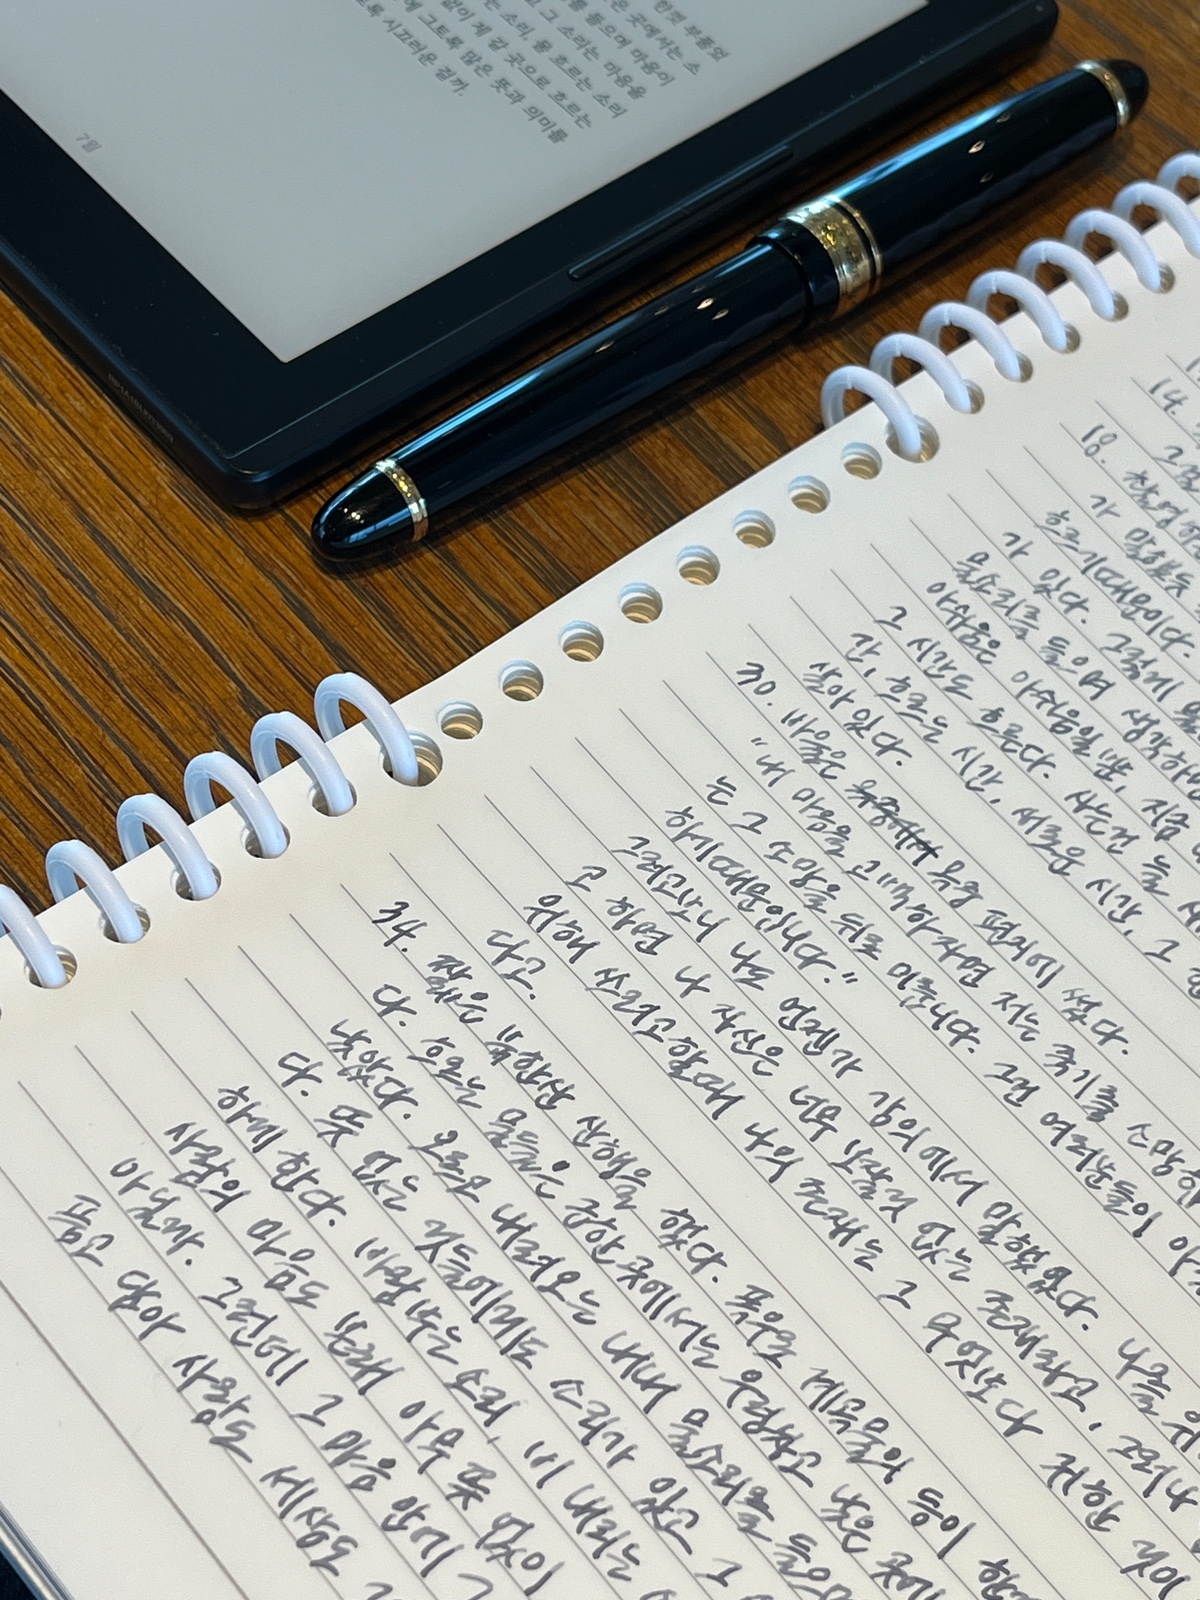 한껏 부풀었
은 곳에서는 소
를 들으며 마음이
그 소리는 마음을
는 소리, 물 흐르는 소리
없이 제 갈 곳으로 흐르는
에 그토록 많은 뜻과 의미를
록 시끄러운 걸까.
7월
14.
18.
흐르기 때문이다. 그렇게
가 있다.
물소리를 들으며 생각
아쉬움은 아쉬움일 뿐, 지금
그 시간도 흐른다. 사는 건 늘
간, 흐르는 시간, 새로운 시간, 그
살아 있다.
30. 바울은 옥중 편지에 썼다.
"내 마음을 고백하자면 저는 죽기를 소망
는 그 소망을 뒤로 미룹니다. 그건 여러분들이
하기 때문입니다."
그러고 보니 나도 언젠가 강의에서 말했었다. 나를 위
고 하면 나 자신은 너무 보잘 것 없는 존재라고, 그러나
위해 쓰려고 할 때 나의 존재는 그 무엇보다 귀한 것이
다고.
34. 짧은 북한산 산행을 했다. 폭우로 계곡물의 등이 한
다. 흐르는 물들은 급한 곳에서는 우렁차고 낮은 곳에
낮았다. 오르고 내려오는 내내 물소리를 들으며
다. 뜻 없는 것들에게도 소리가 있고 그
하게 한다. 바람 부는 소리, 비 내리는
사람의 마음도 본래 아무 뜻 없이
아닐까. 그런데 그 마음 안에
품고 담아 사람도 세상도